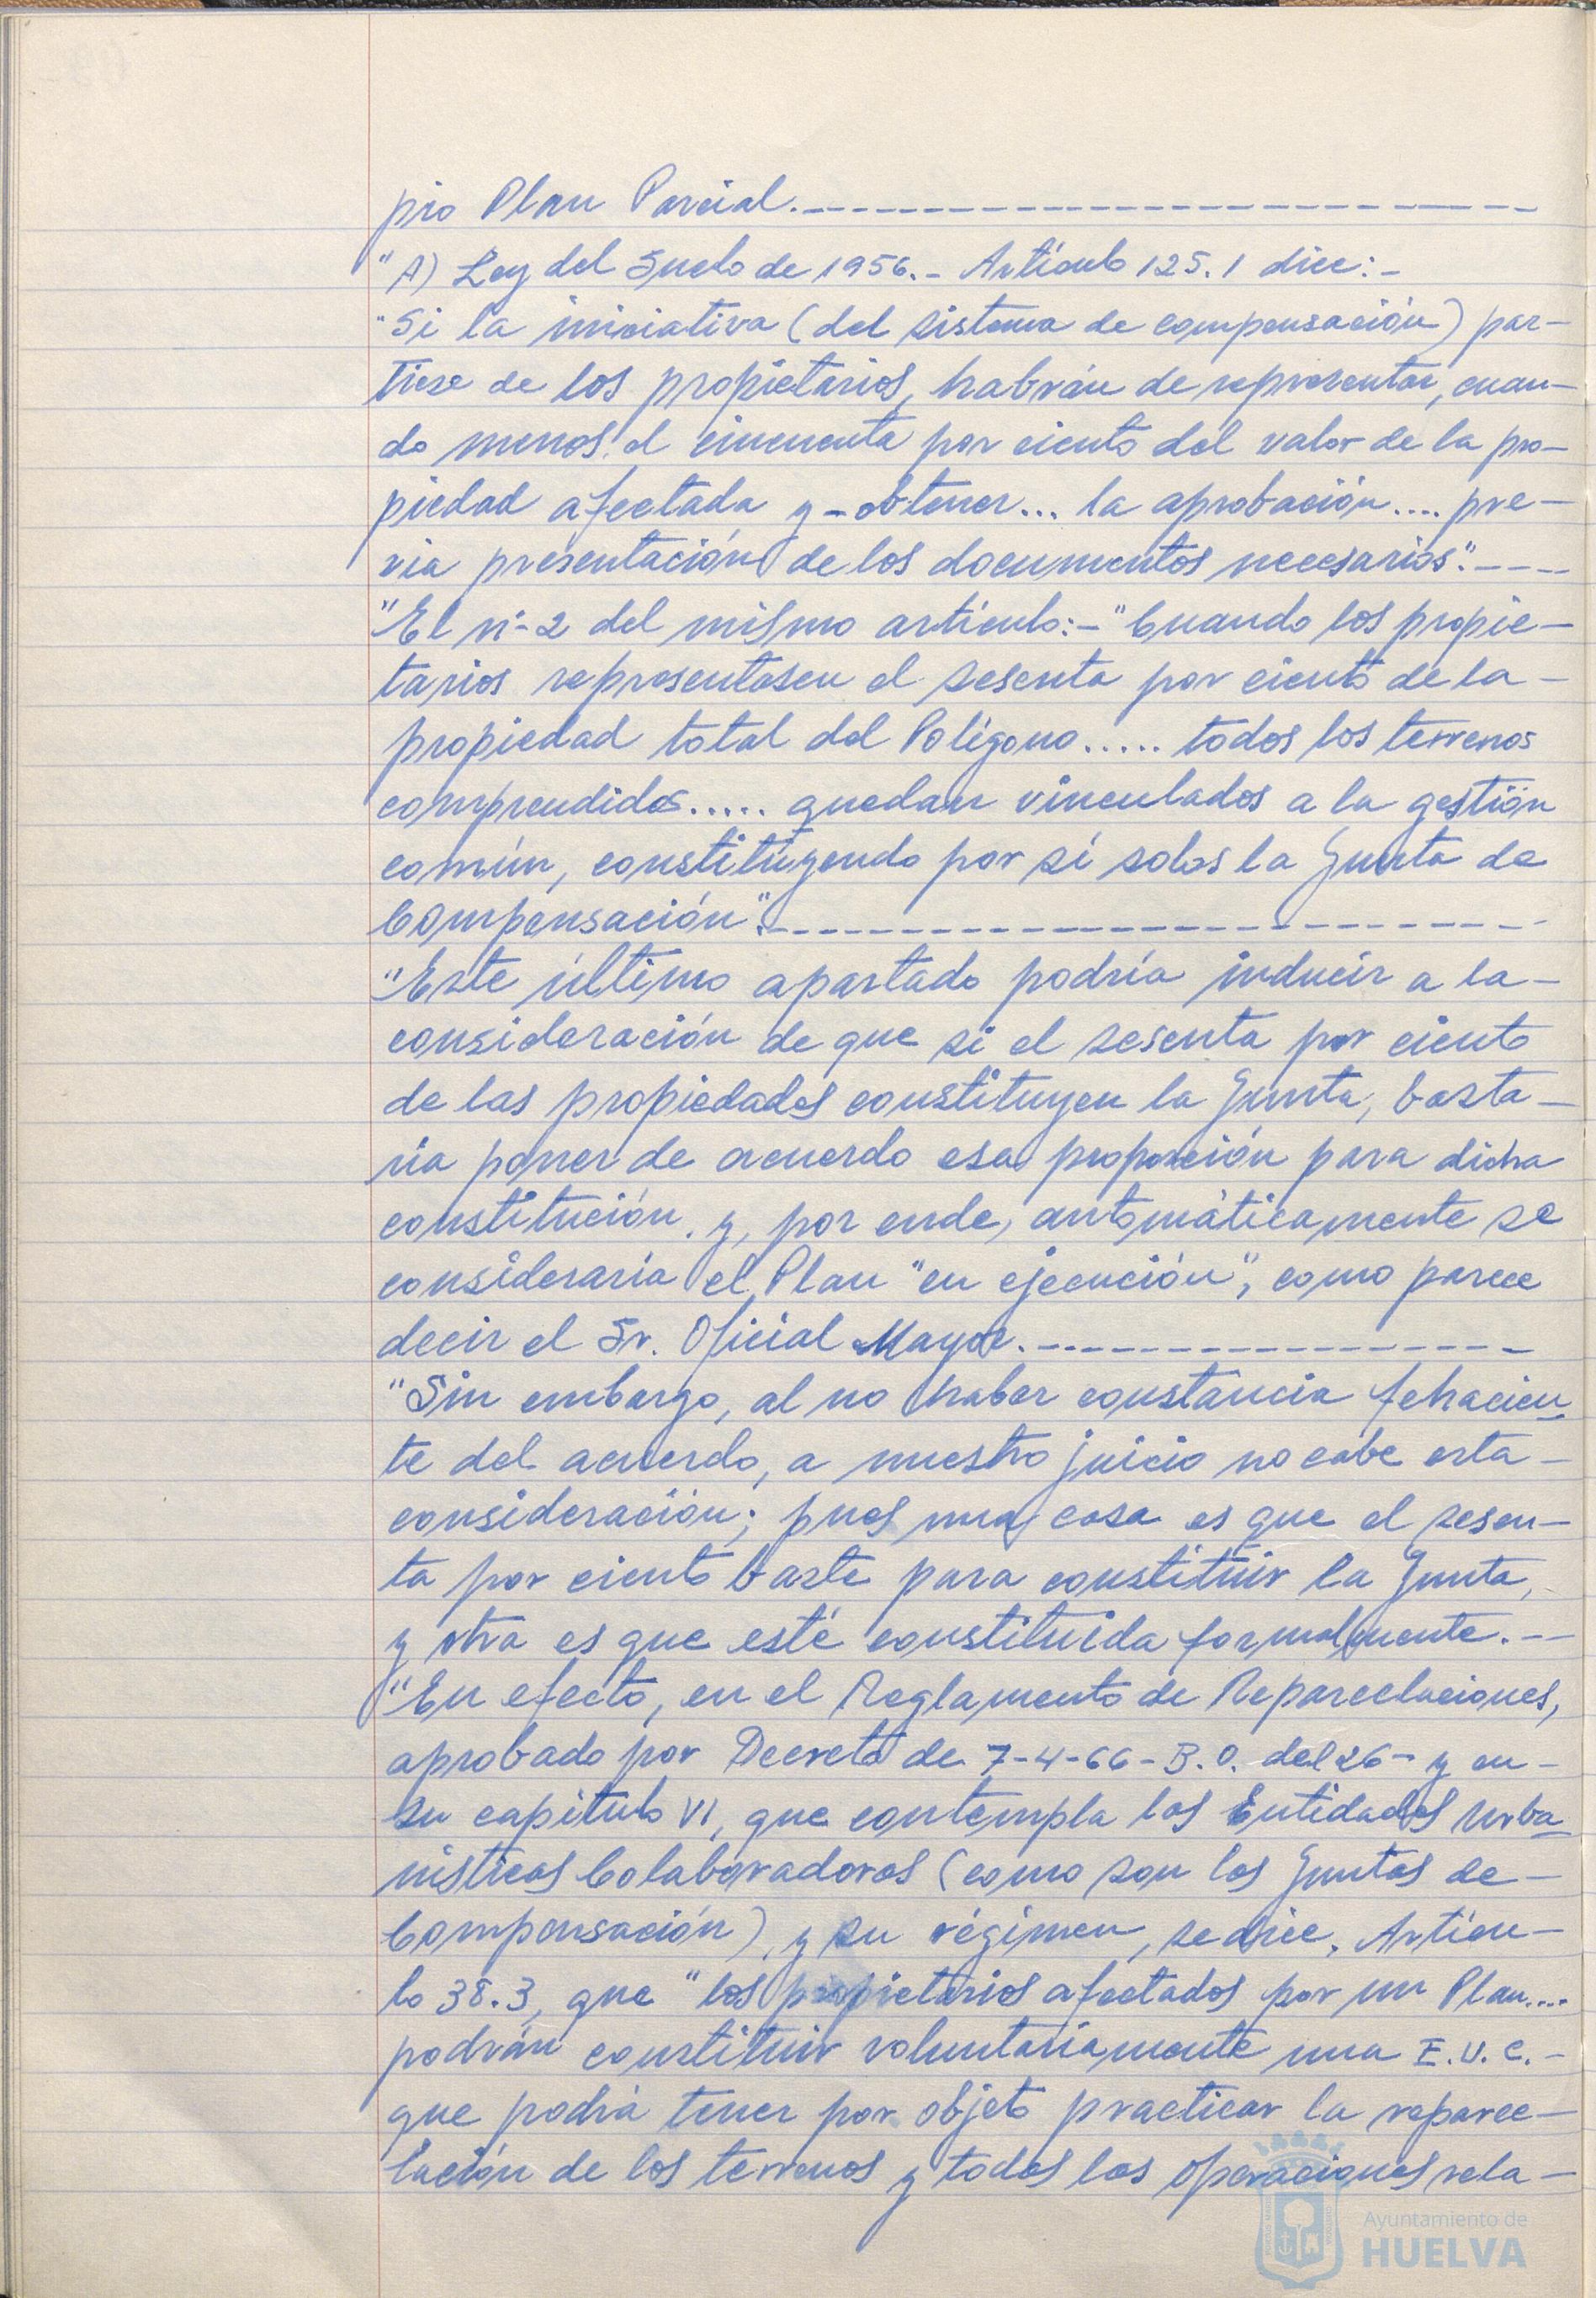 pio Plan Parcial.-------------------------
"A) Ley del Suelo de 1956.- Artículo 125.1 dice:-
"Si la iniciativa (del sistema de compensación) par-
tiese de los propietarios, habrán de representar, cuan-
do menos, el cincuenta por ciento del valor de la pro-
piedad afectada y-obtener... la aprobación.... pre-
via presentación de los documentos necesarios".----
"El nº-2 del mismo artículo:-"Cuando los propie-
tarios representasen el sesenta por ciento de la-
propiedad total del Polígono..... todos los terrenos
comprendidos..... quedan vinculados a la gestión
común, constituyendo por sí solos la Junta de
Compensación".--------------------------
"Este último apartado podría inducir a la-
consideración de que si el sesenta por ciento
de las propiedades constituyen la Junta, basta-
ría poner de acuerdo esa proporción para dicha
constitución y, por ende, automáticamente se
consideraría el Plan "en ejecución", como parece
decir el Sr. Oficial Mayor.-----------------
"Sin embargo, al no haber constancia fehacien-
te del acuerdo, a nuestro juicio no cabe esta-
consideración; pues una cosa es que el sesen-
ta por ciento baste para constituir la Junta,
y otra es que esté constituida formalmente.--
"En efecto, en el Reglamento de Reparcelaciones,
aprobado por Decreto de 7-4-66-B.O. del 26- y en-
su capítulo VI, que contempla las Entidades Urba-
nísticas Colaboradoras (como son las Juntas de-
Compensación), y su régimen, se dice, Artícu-
lo 38.3, que "los propietarios afectados por un Plan....
podrán constituir voluntariamente una E.U.C.-
que podrá tener por objeto practicar la reparce-
lación de los terrenos y todas las operaciones rela-
Ayuntamiento de
HUELVA